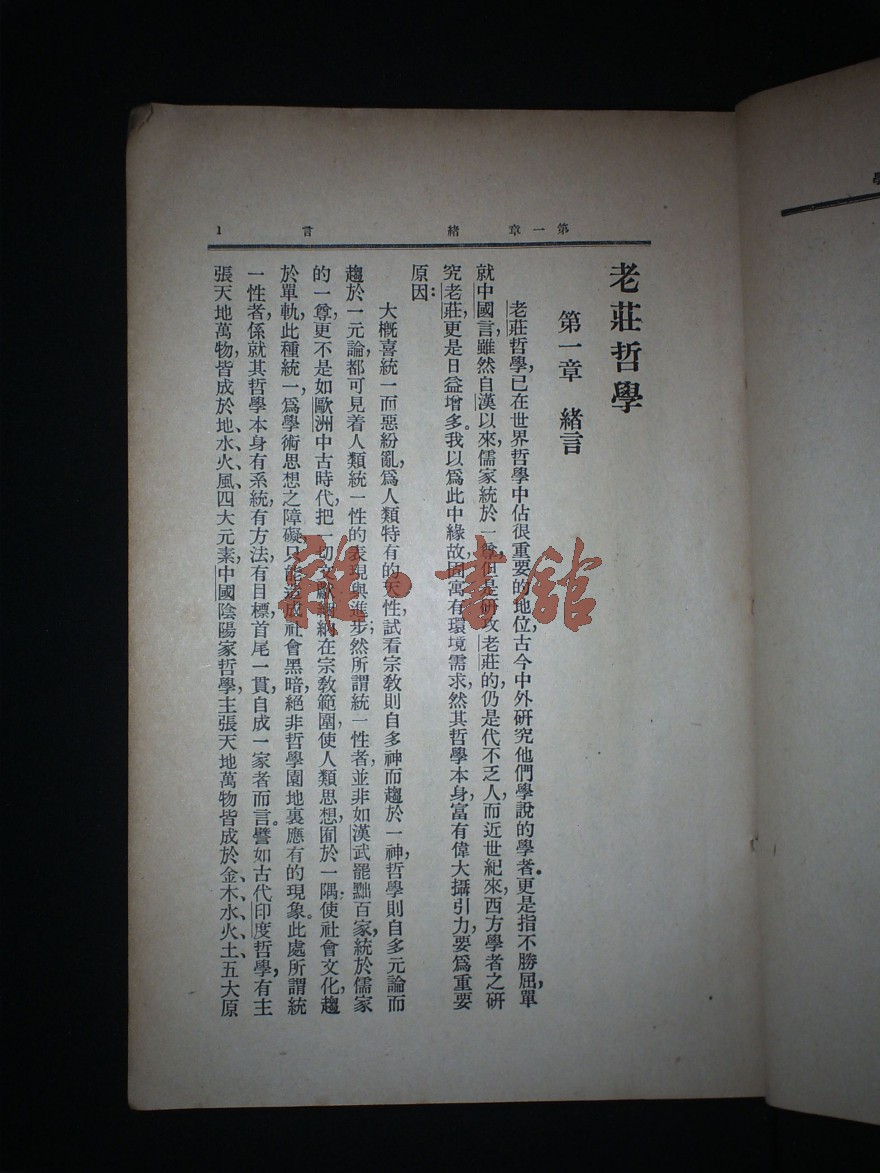 第一章 緒言 1
老莊哲學
第一章 緒言
老莊哲學，已在世界哲學中佔很重要的地位，古今中外研究他們學說的學者，更是指不勝屈，單
就中國言，雖然自漢以來，儒家統於一尊，但是研攷老莊的仍是代不乏人，而近世紀來，西方學者之研
究老莊，更是日益增多。我以爲此中緣故，固寓有環境需求，然其哲學本身，富有偉大攝引力，要爲重要
原因：
大概喜統一而惡紛亂，爲人類特有的天性，試看宗教則自多神而趨於一神，哲學則自多元論而
趨於一元論，都可見着人類統一性的表現與進步；然所謂統一性者，並非如漢武罷黜百家，統於儒家
的一尊，更不是如歐洲中古時代，把一切文獻網納在宗教範圍，使人類思想囿於一隅；使社會文化，趨
於單軌，此種統一，爲學術思想之障礙，只能造成社會黑暗，絕非哲學園地裏應有的現象。此處所謂統
一性者，係就其哲學本身有系統，有方法，有目標，首尾一貫，自成一家者而言。譬如古代印度哲學，有主
張天地萬物，皆成於地、水、火、風、四大元素，中國陰陽家哲學，主張天地萬物皆成於金、木、水、火、土、五大原
雜·書館
學